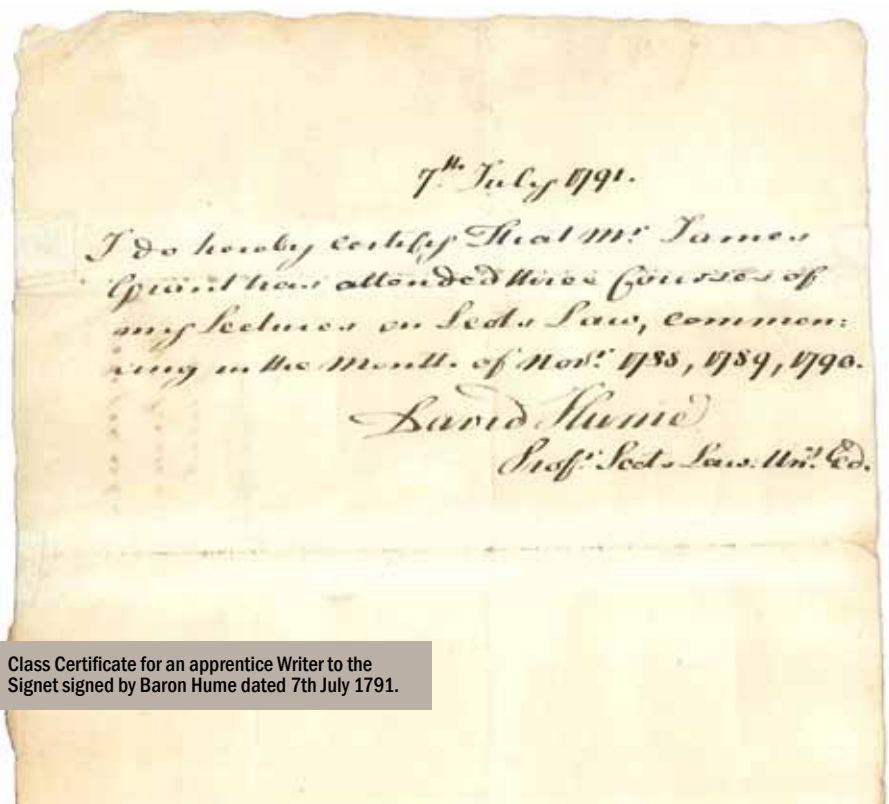 7th. July 1791.
I do hereby certify That Mr. James
Grant has attended three Courses of
my Lectures on Scots Law, commen:
cing in the Month of Novr. 1788, 1789, 1790.
David Hume
Profr. Scots Law. Unr. Ed.
Class Certificate for an apprentice Writer to the
Signet signed by Baron Hume dated 7th July 1791.